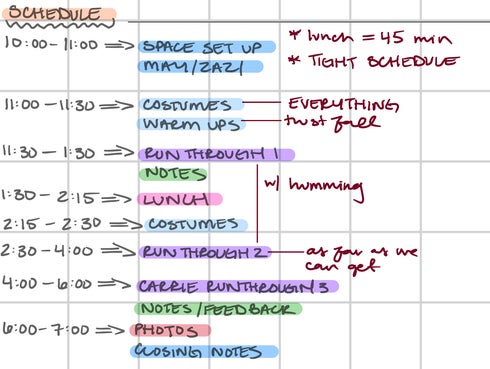 SCHEDULE
10:00-11:00 ⇒ SPACE SET UP
MAY/ZAZ/
* lunch = 45 min
* TIGHT SCHEDULE
11:00-11:30 ⇒ COSTUMES — EVERYTHING
WARM UPS — trust fall
11:30-1:30 ⇒ RUN THROUGH 1
NOTES
w/ humming
1:30-2:15 ⇒ LUNCH
2:15-2:30 ⇒ COSTUMES
2:30-4:00 ⇒ RUN THROUGH 2 — as far as we
can get
4:00-6:00 ⇒ CARRIE RUNTHROUGH 3
NOTES/FEEDBACK
6:00-7:00 ⇒ PHOTOS
CLOSING NOTES